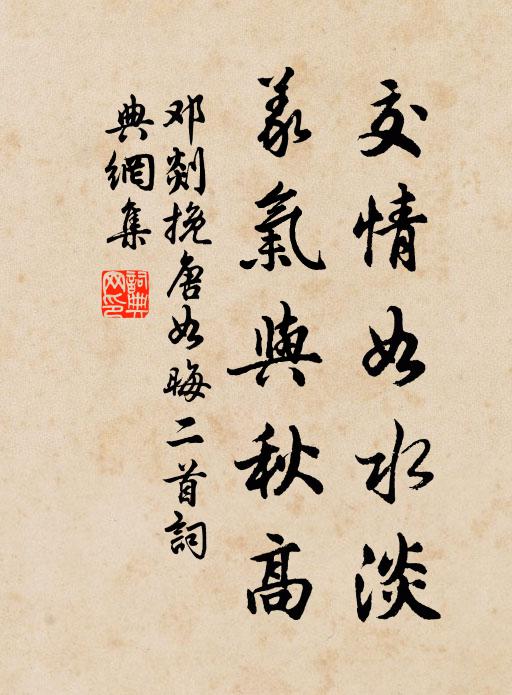 交情如水淡
義氣與秋高
邓剡挽唐如晦二首詞
典網集
詞典网印